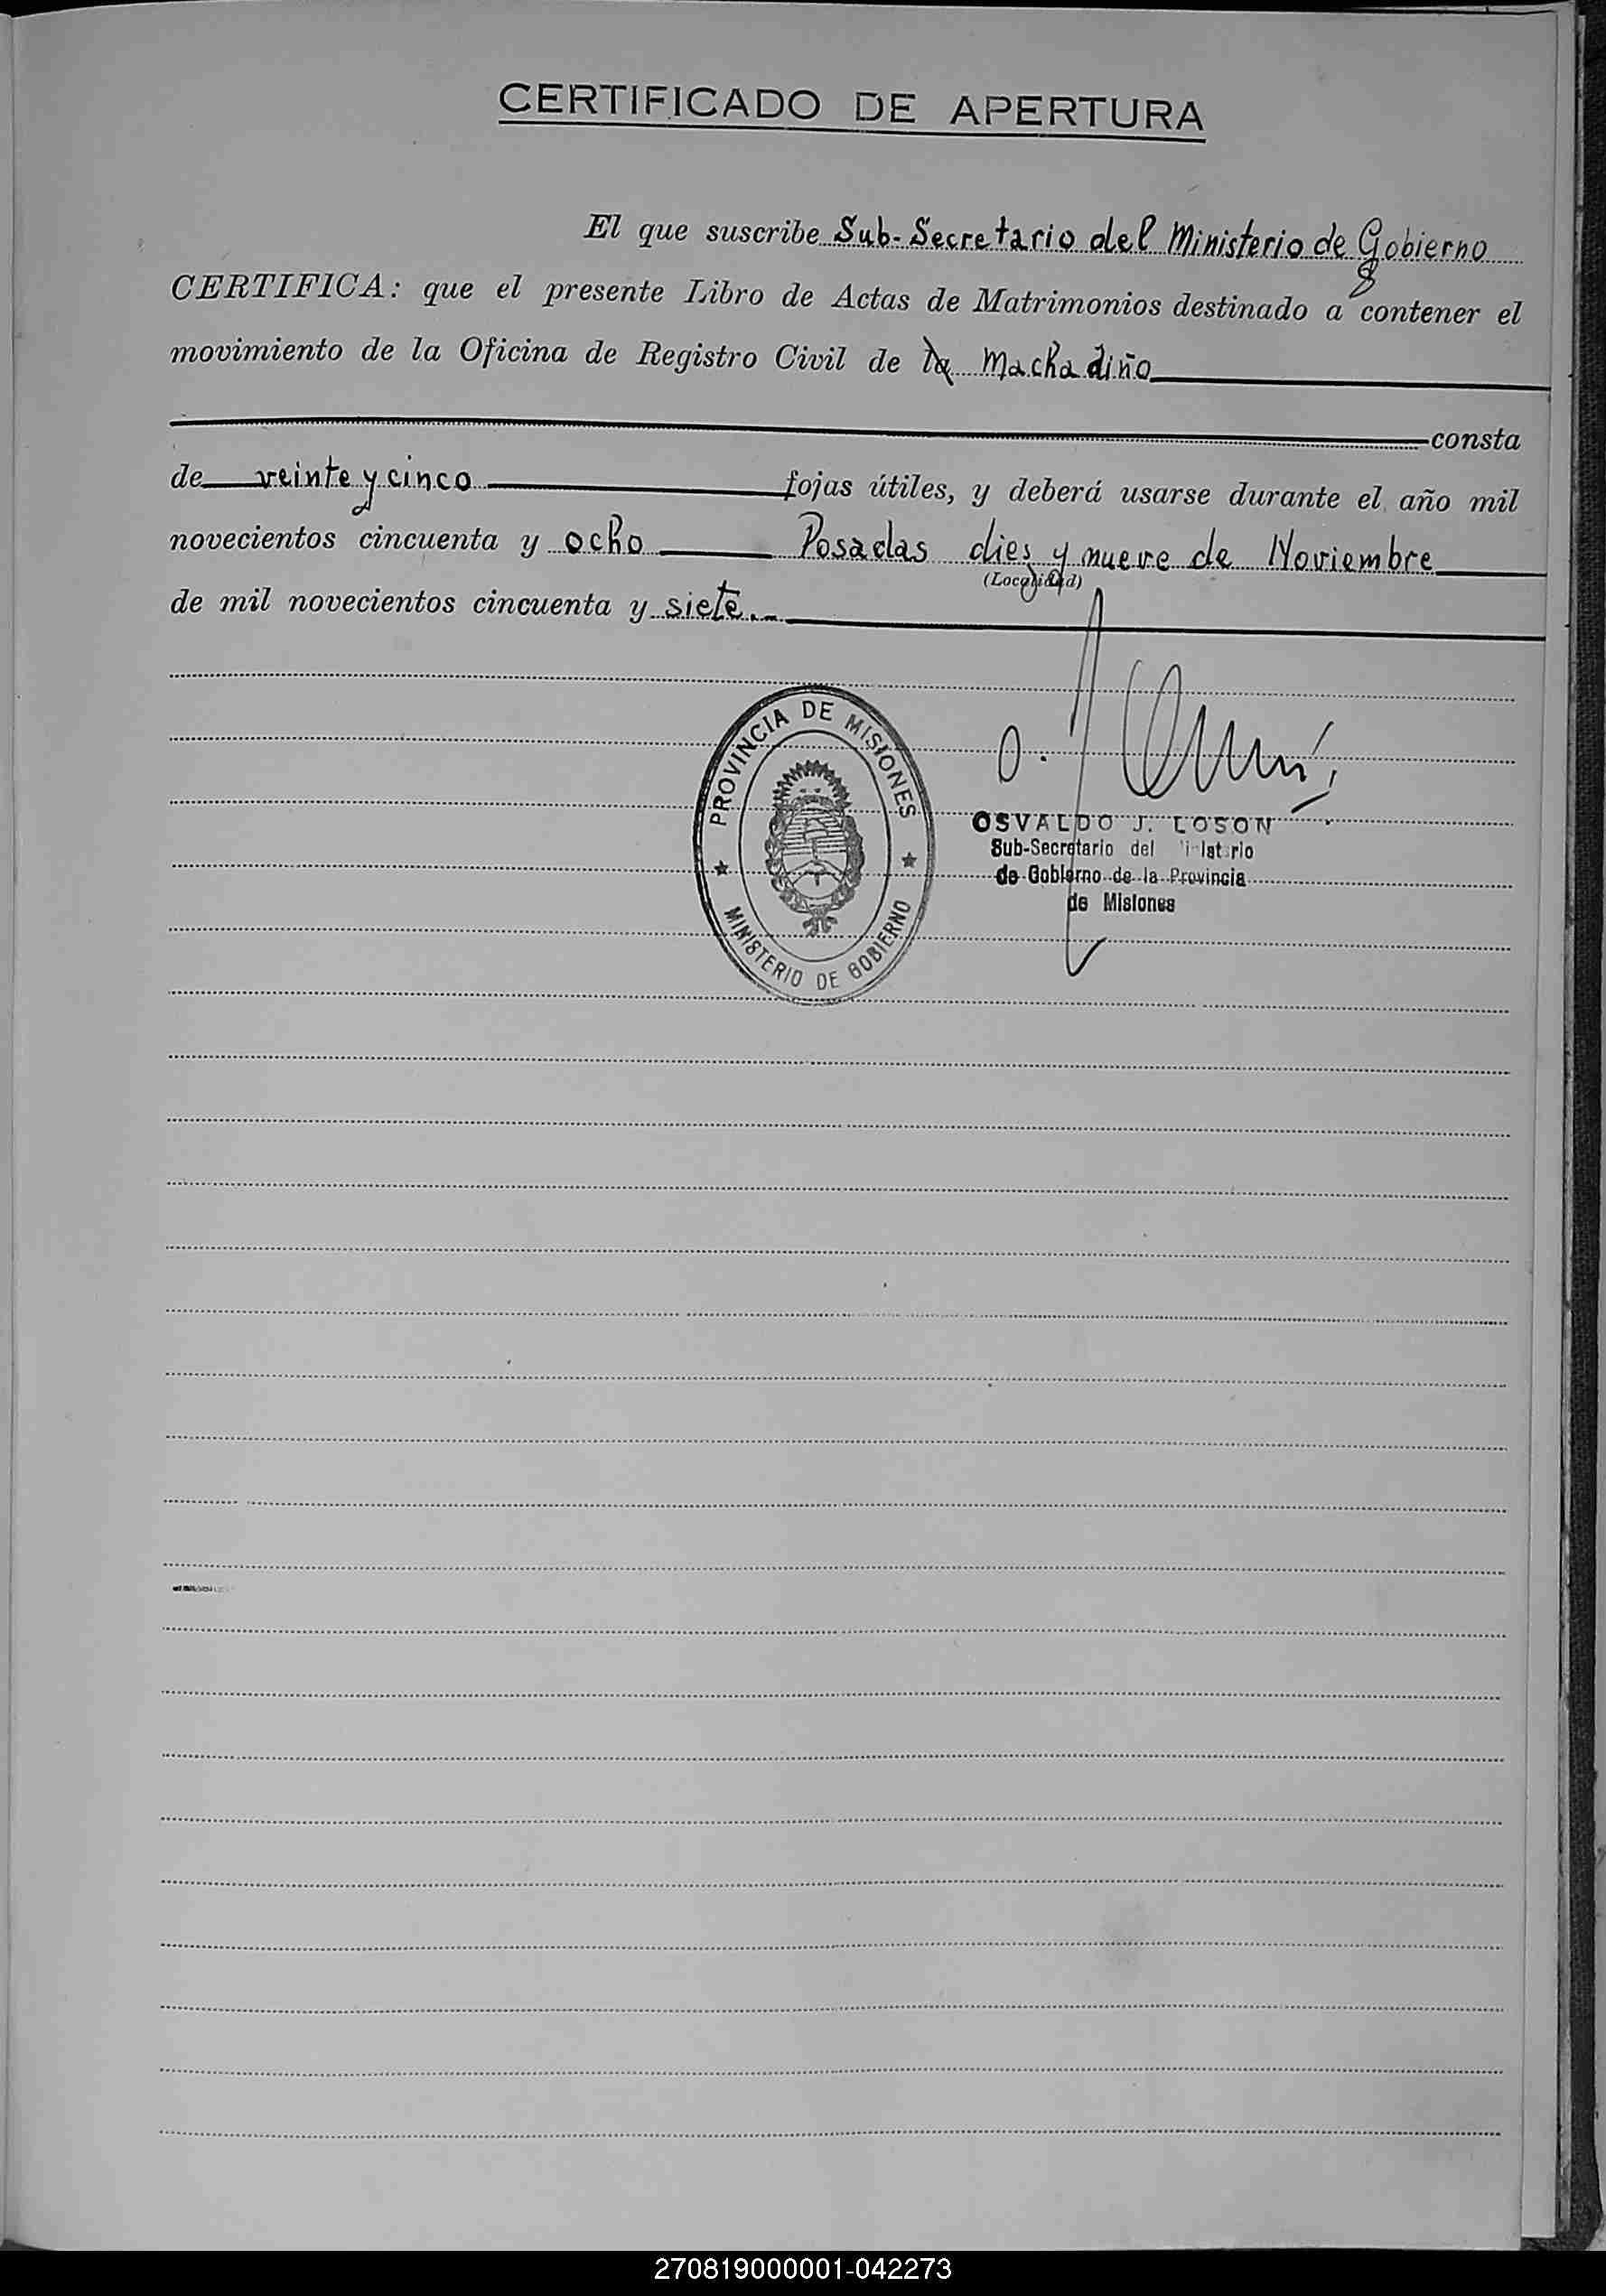 CERTIFICADO DE APERTURA
El que suscribe Sub-Secretario del Ministerio de Gobierno
CERTIFICA: que el presente Libro de Actas de Matrimonios destinado a contener el
movimiento de la Oficina de Registro Civil de la Machadiño
consta
de veinte y cinco fojas útiles, y deberá usarse durante el año mil
novecientos cincuenta y ocho Posadas dies y nueve de Noviembre
(Localidad)
de mil novecientos cincuenta y siete.-
PROVINCIA DE MISIONES
MINISTERIO DE GOBIERNO
OSVALDO J. LOSON
Sub-Secretario del
de Gobierno de la Provincia
de Misiones
270819000001-042273